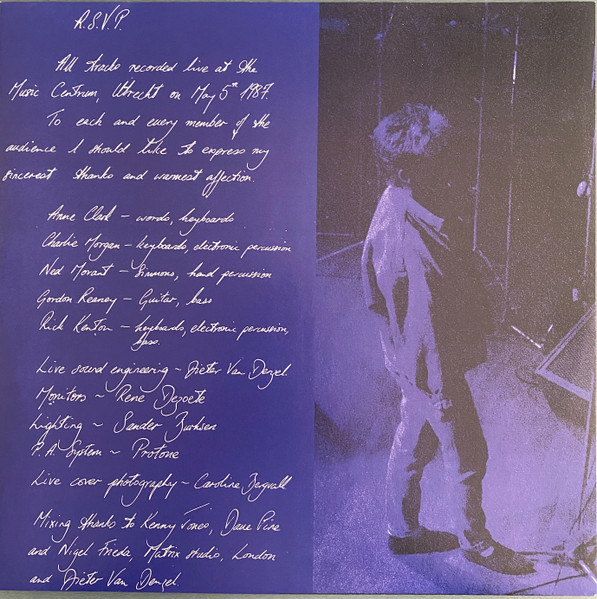 R.S.V.P.
All tracks recorded live at the
Music Centrum, Utrecht on May 5th 1987.
To each and every member of the
audience I should like to express my
sincerest thanks and warmest affection.
Anne Clark – words, keyboards
Charlie Morgan – keyboards, electronic percussion
Ned Morant – Simmons, hand percussion
Gordon Reaney – Guitar, bass
Rick Kenton – keyboards, electronic percussion,
bass.
Live sound engineering – Dieter Van Denzel.
Monitors – Rene Depoete
Lighting – Sander
P.A System – Protone
Live cover photography – Caroline Bergvall
Mixing thanks to Kenny Jones, Dave Pine
and Nigel Frieda, Matrix studio, London
and Dieter Van Denzel.